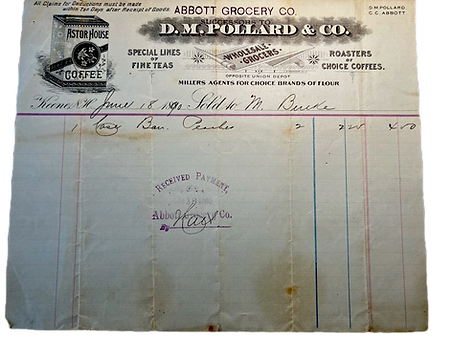 All Claims for Deductions must be made
within Ten Days after Receipt of Goods.
ABBOTT GROCERY CO.
D.M. POLLARD
C.C. ABBOTT
SUCCESSORS TO
D.M. POLLARD & CO.
ASTOR HOUSE
COFFEE
SPECIAL LINES
OF
FINE TEAS
WHOLESALE
GROCERS
OPPOSITE UNION DEPOT
ROASTERS
OF
CHOICE COFFEES.
MILLERS AGENTS FOR CHOICE BRANDS OF FLOUR
Keene, N.H. June 18 Sold to M. Burke
1 Case Peaches 2 4 50
RECEIVED PAYMENT,
Abbott Co.
By